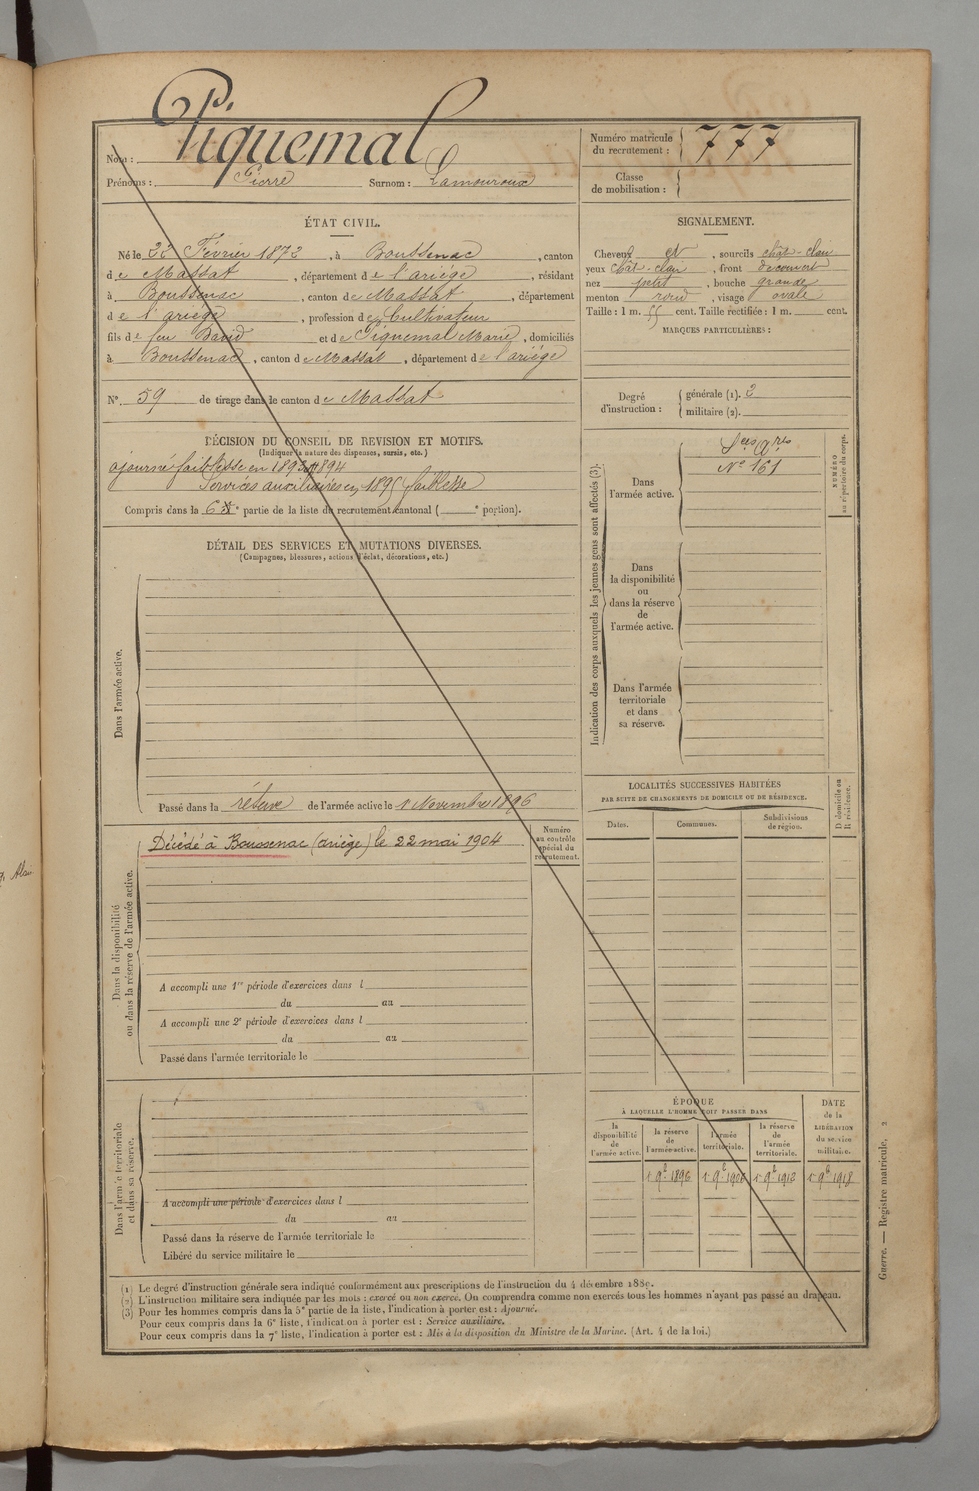 Nom : Piquemal
Prénoms : Pierre Surnom : Lamouroux
Numéro matricule du recrutement : 777
Classe de mobilisation :
ÉTAT CIVIL.
Né le 22 Février 1872, à Boussenac, canton
de Massat, département de l'ariège, résidant
à Boussenac, canton de Massat, département
de l'ariège, profession de Cultivateur
fils de feu David et de Piquemal Marie, domiciliés
à Boussenac, canton de Massat, département de l'ariège
N° 59 de tirage dans le canton de Massat
SIGNALEMENT.
Cheveux et, sourcils chât-clair
yeux chât-clair, front découvert
nez petit, bouche grande
menton rond, visage ovale
Taille : 1 m. 55 cent. Taille rectifiée : 1 m. cent.
MARQUES PARTICULIÈRES :
Degré d'instruction : générale (1). 2
militaire (2).
DÉCISION DU CONSEIL DE REVISION ET MOTIFS.
(Indiquer la nature des dispenses, sursis, etc.)
ajourné faiblesse en 1893 et 1894
Services auxiliaires en 1895 faiblesse
Compris dans la 6e partie de la liste de recrutement cantonal ( e portion).
DÉTAIL DES SERVICES ET MUTATIONS DIVERSES.
(Campagnes, blessures, actions d'éclat, décorations, etc.)
Dans l'armée active.
Passé dans la réserve de l'armée active le 1 Novembre 1896
Dans la disponibilité
ou dans la réserve de l'armée active.
Décédé à Boussenac (ariège) le 22 mai 1904
Numéro
au contrôle
spécial du
recrutement.
A accompli une 1re période d'exercices dans l
du au
A accompli une 2e période d'exercices dans l
du au
Passé dans l'armée territoriale le
Dans l'armée territoriale
et dans sa réserve.
A accompli une période d'exercices dans l
du au
Passé dans la réserve de l'armée territoriale le
Libéré du service militaire le
Indication des corps auxquels les jeunes gens sont affectés (3).
Dans
l'armée active.
Ses Ares
N° 161
NUMÉRO
au répertoire du corps.
Dans
la disponibilité
ou
dans la réserve
de
l'armée active.
Dans l'armée
territoriale
et dans
sa réserve.
LOCALITÉS SUCCESSIVES HABITÉES
PAR SUITE DE CHANGEMENTS DE DOMICILE OU DE RÉSIDENCE.
Dates. Communes. Subdivisions
de région.
D domicile ou
R résidence.
ÉPOQUE
À LAQUELLE L'HOMME DOIT PASSER DANS
la
disponibilité
de
l'armée active.
la réserve
de
l'armée active.
l'armée
territoriale.
la réserve
de
l'armée
territoriale.
DATE
de la
LIBÉRATION
du service
militaire.
1 9e 1896 1 9e 1906 1 9e 1912 1 9e 1918
(1) Le degré d'instruction générale sera indiqué conformément aux prescriptions de l'instruction du 4 décembre 1889.
(2) L'instruction militaire sera indiquée par les mots : exercé ou non exercé. On comprendra comme non exercés tous les hommes n'ayant pas passé au drapeau.
(3) Pour les hommes compris dans la 5e partie de la liste, l'indication à porter est : Ajourné.
Pour ceux compris dans la 6e liste, l'indication à porter est : Service auxiliaire.
Pour ceux compris dans la 7e liste, l'indication à porter est : Mis à la disposition du Ministre de la Marine. (Art. 4 de la loi.)
Guerre. — Registre matricule, 2